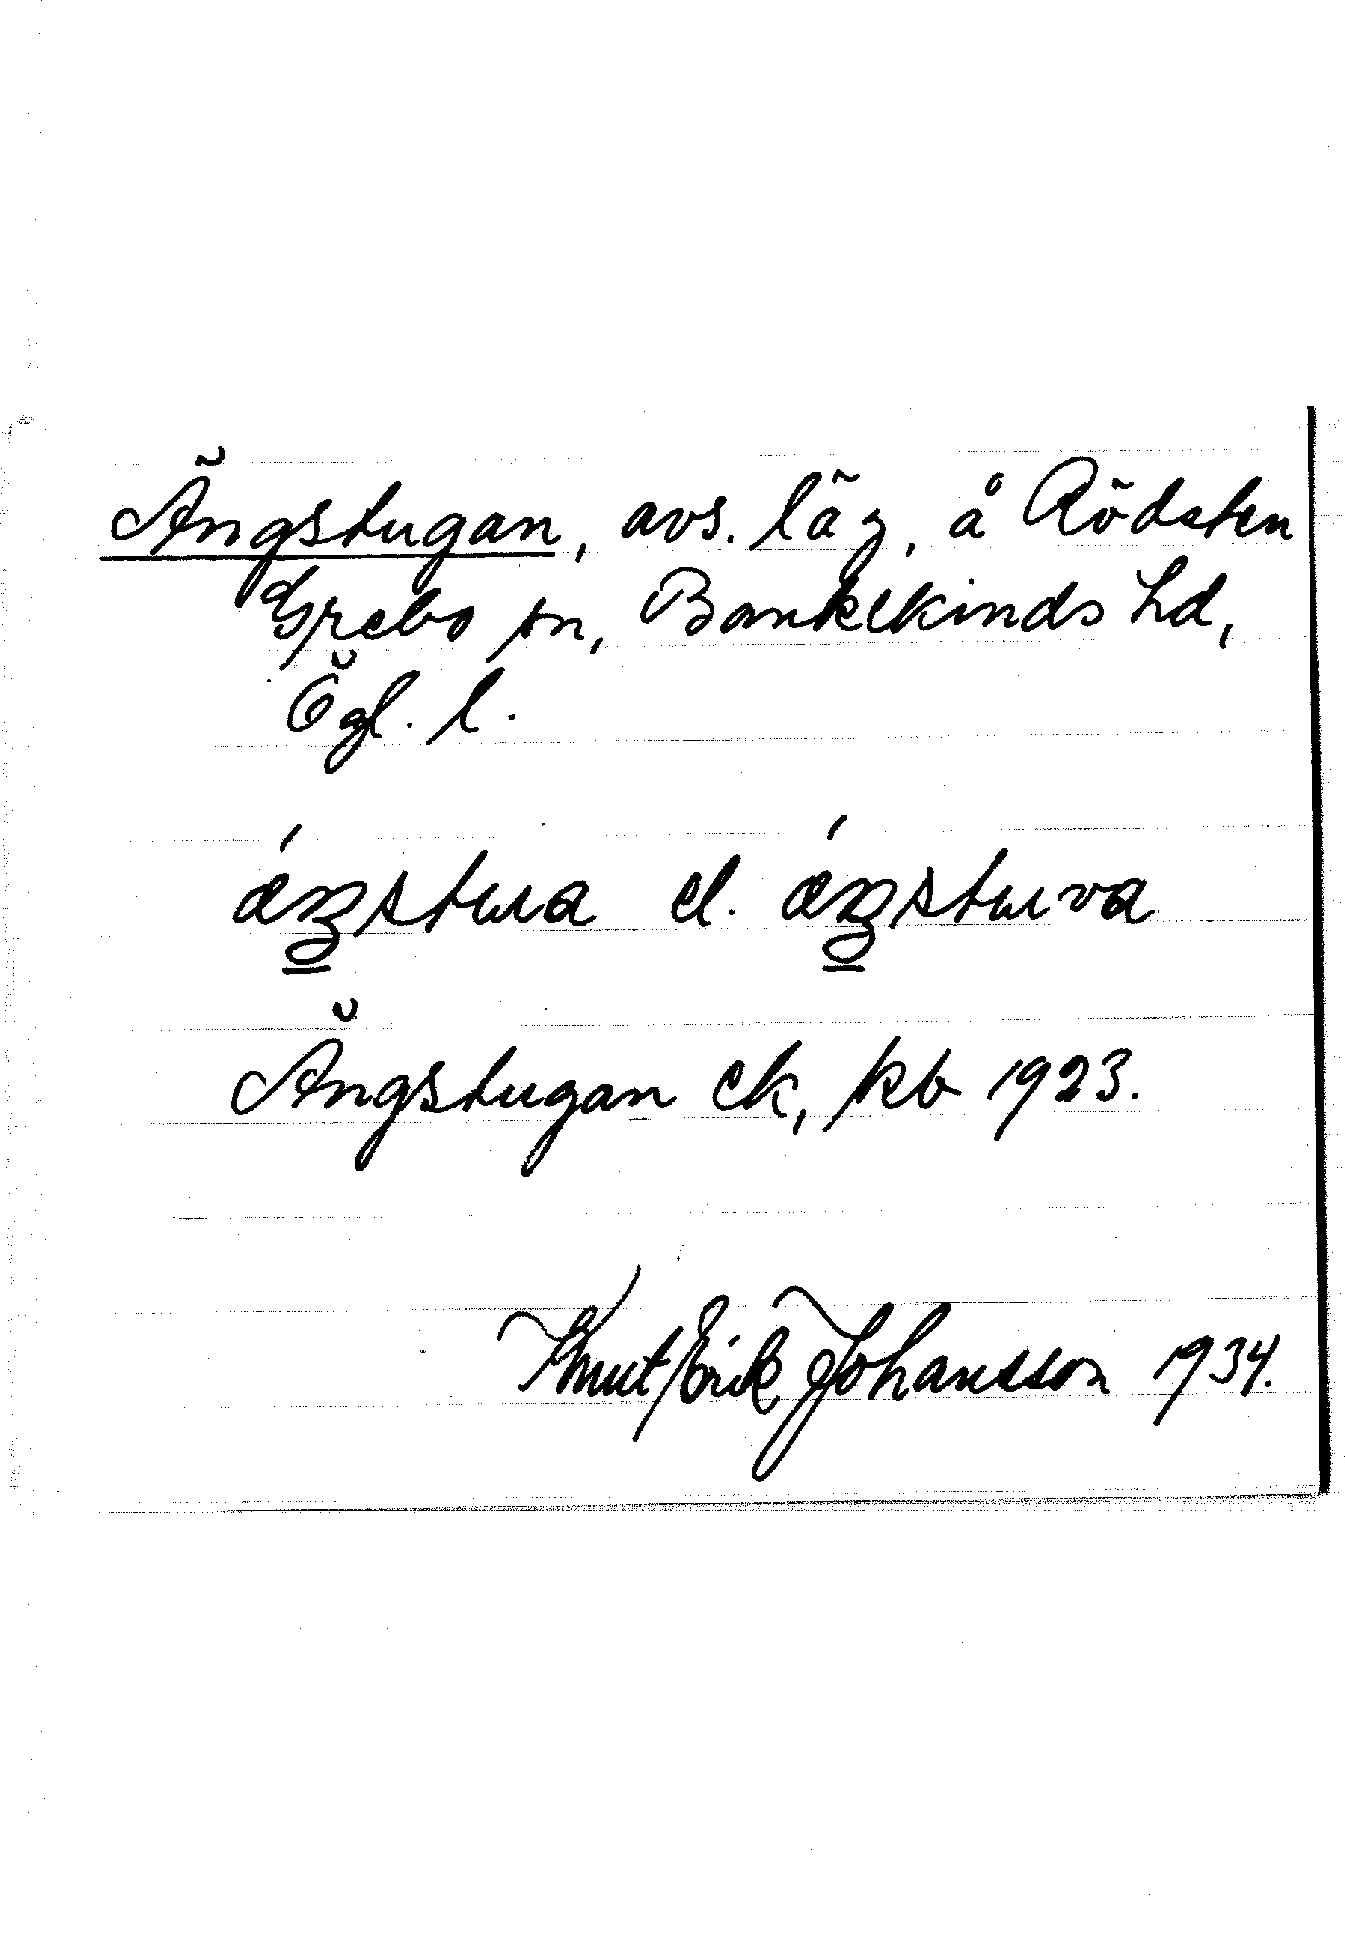 Ängstugan, avs. läg. å Rödsten
Grebo sn, Bankekinds hd,
Ögl. l.
ǽŋstɯa el. ǽŋstɯva
Ängstugan ek, kb 1923.
Knut Erik Johansson 1934.